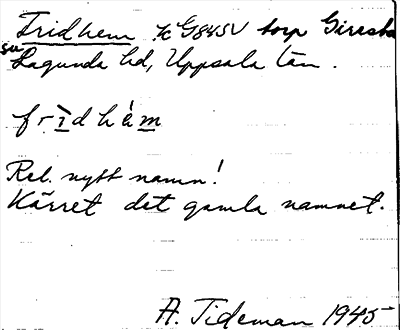 Fridhem 7c G84SV torp Giresta
sn Lagunda hd, Uppsala län.
frīdhèm
Rel. nytt namn!
Kärret det gamla namnet.
A. Tideman 1945